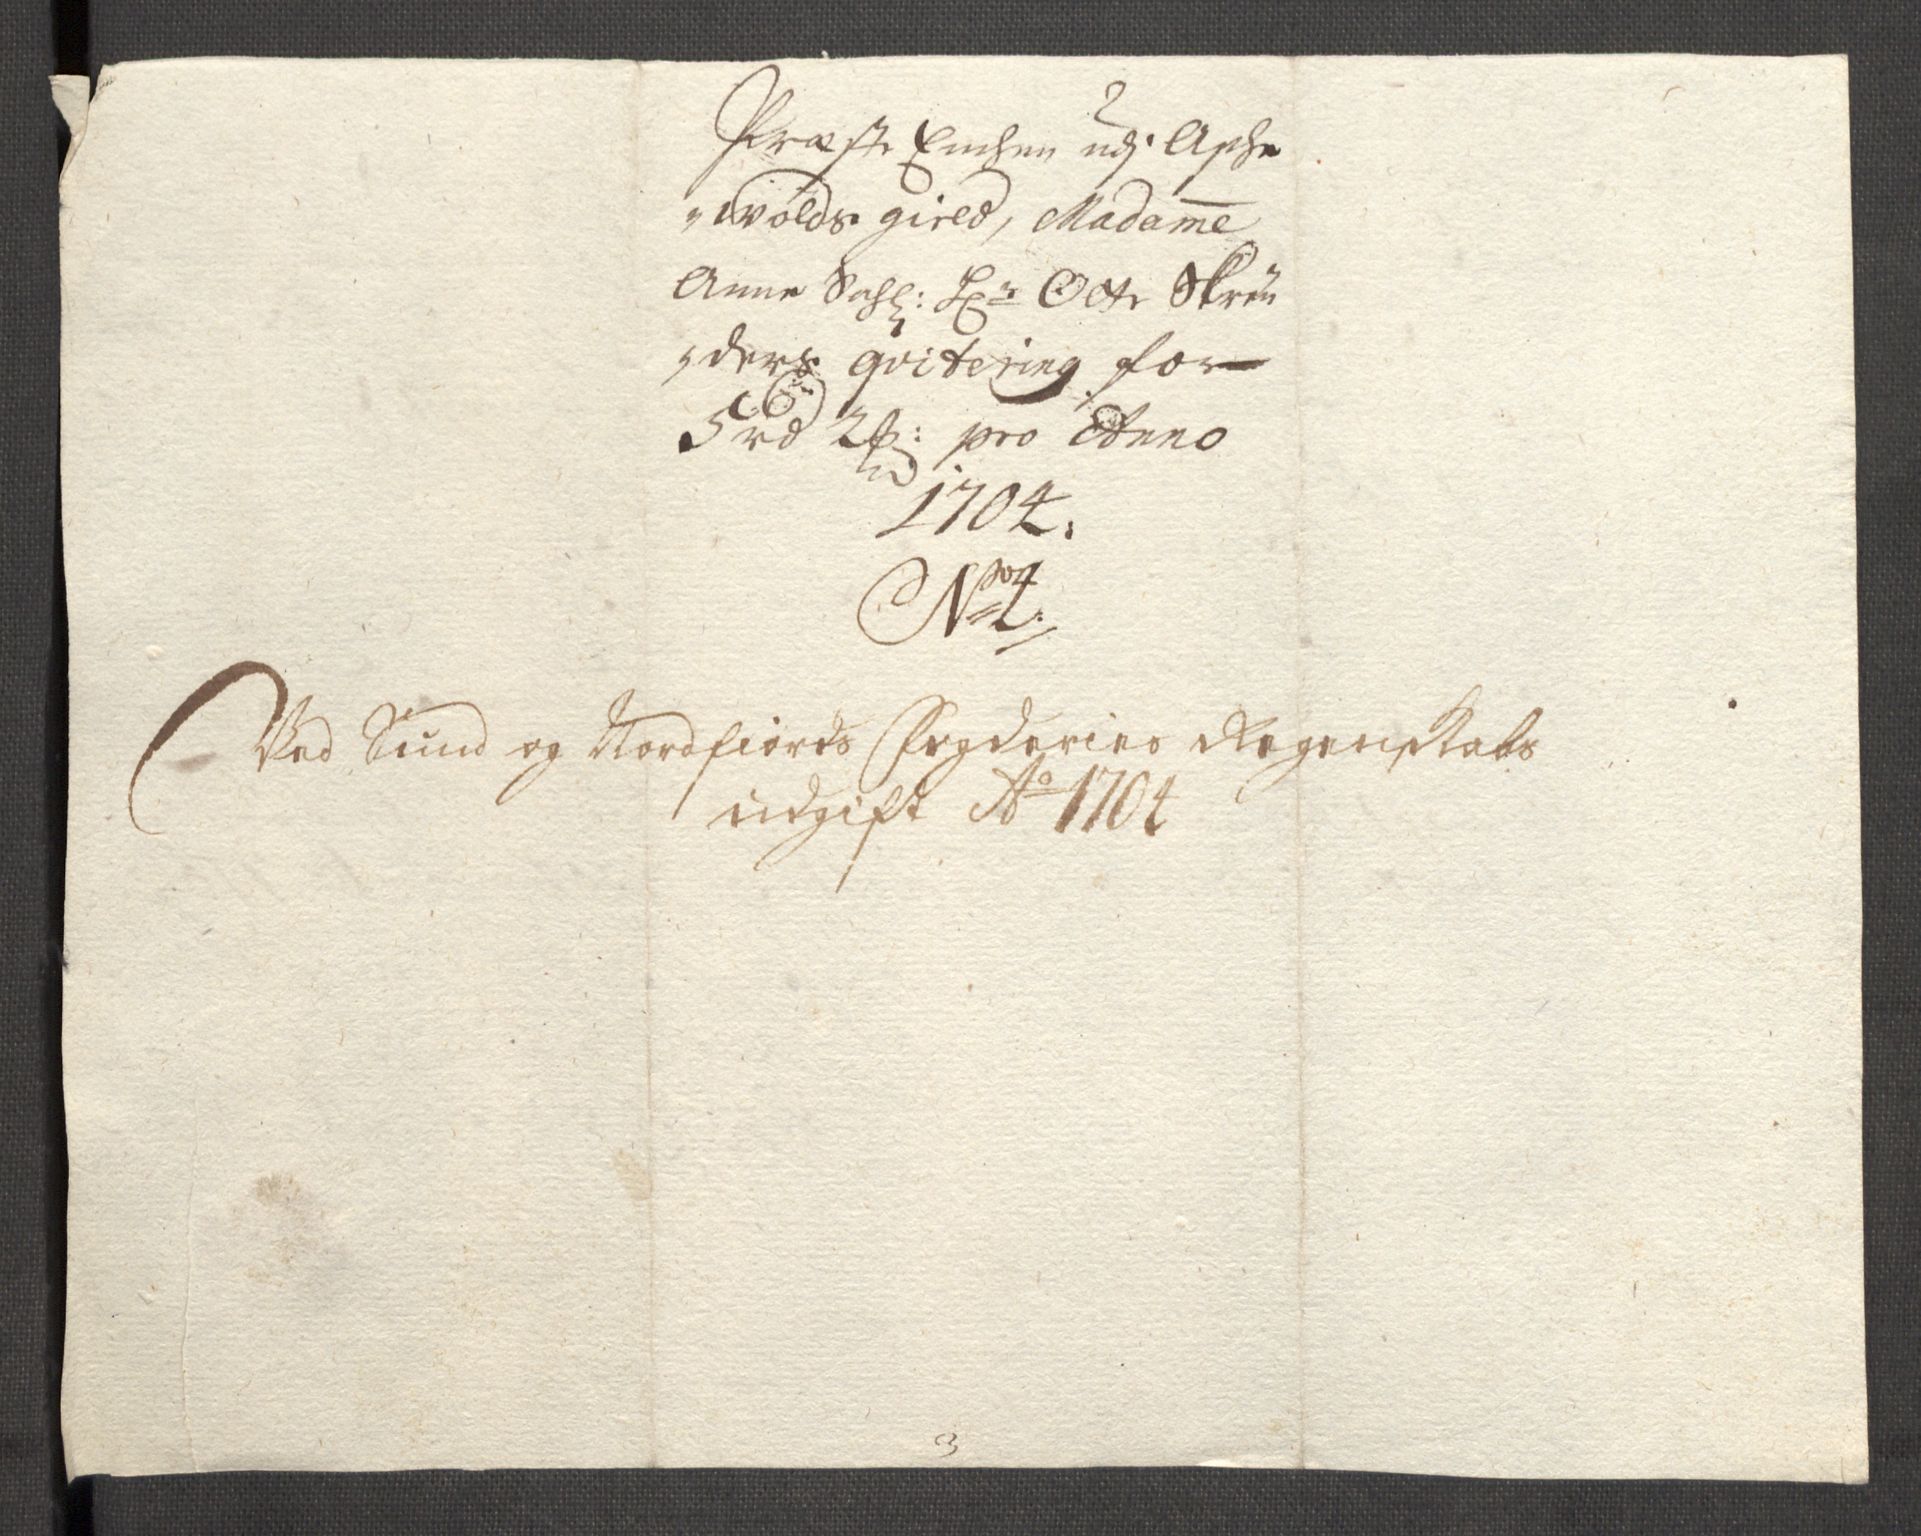 Præste Enchen udj Asche
„wolds gield, Madam̄e
Anne Sahl: Hr Otte Skreü
„ders qvitering for
5 rd 2 ß: pro Anno
1704.
No 4.
Ved Sund og Nordfiords Fogderies Regenskabs
udgift Ao 1704
3